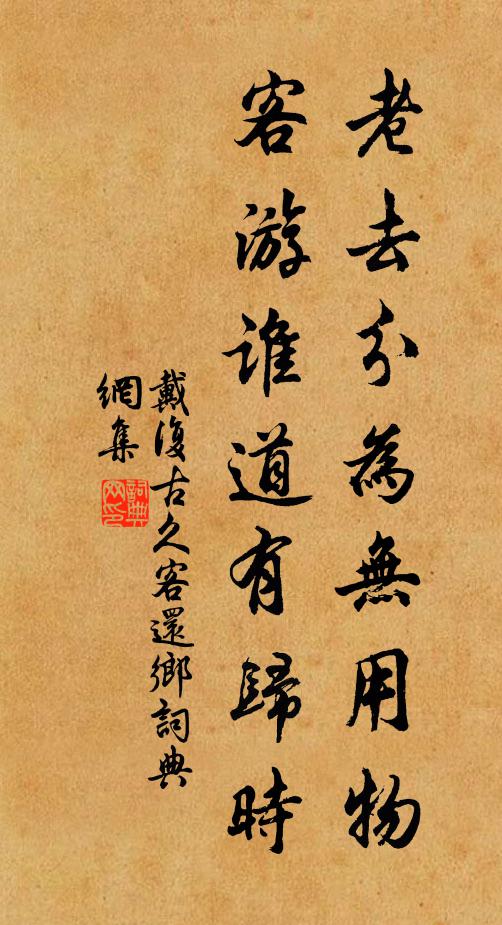 老去分為無用物
客游誰道有歸時
戴復古久客還鄉詞典
網集
詞典
网印